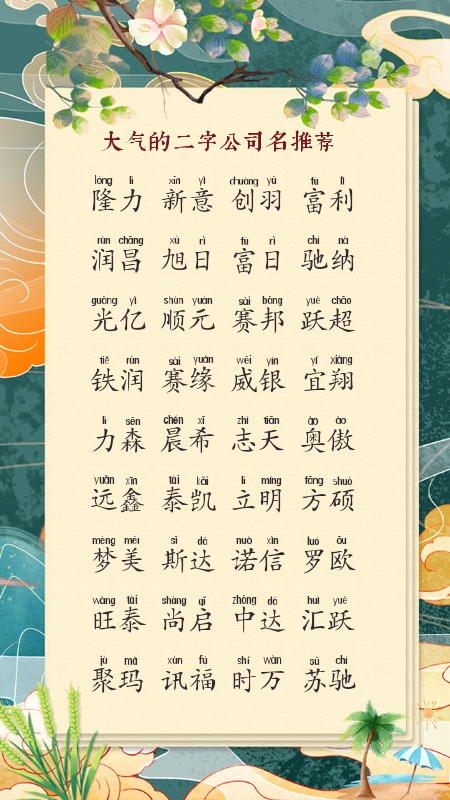 大气的二字公司名推荐
lóng lì xīn yì chuàng yǔ fù lì
隆力 新意 创羽 富利
rùn chāng xù rì fù rì chí nà
润昌 旭日 富日 驰纳
guāng yì shùn yuán sài bāng yuè chāo
光亿 顺元 赛邦 跃超
tiě rùn sài yuán wēi yín yí xiáng
铁润 赛缘 威银 宜翔
lì sēn chén xī zhì tiān ào ào
力森 晨希 志天 奥傲
yuǎn xīn tài kǎi lì míng fāng shuò
远鑫 泰凯 立明 方硕
mèng měi sī dá nuò xìn luó ōu
梦美 斯达 诺信 罗欧
wàng tài shàng qǐ zhōng dá huì yuè
旺泰 尚启 中达 汇跃
jù mǎ xùn fú shí wàn sū chí
聚玛 讯福 时万 苏驰